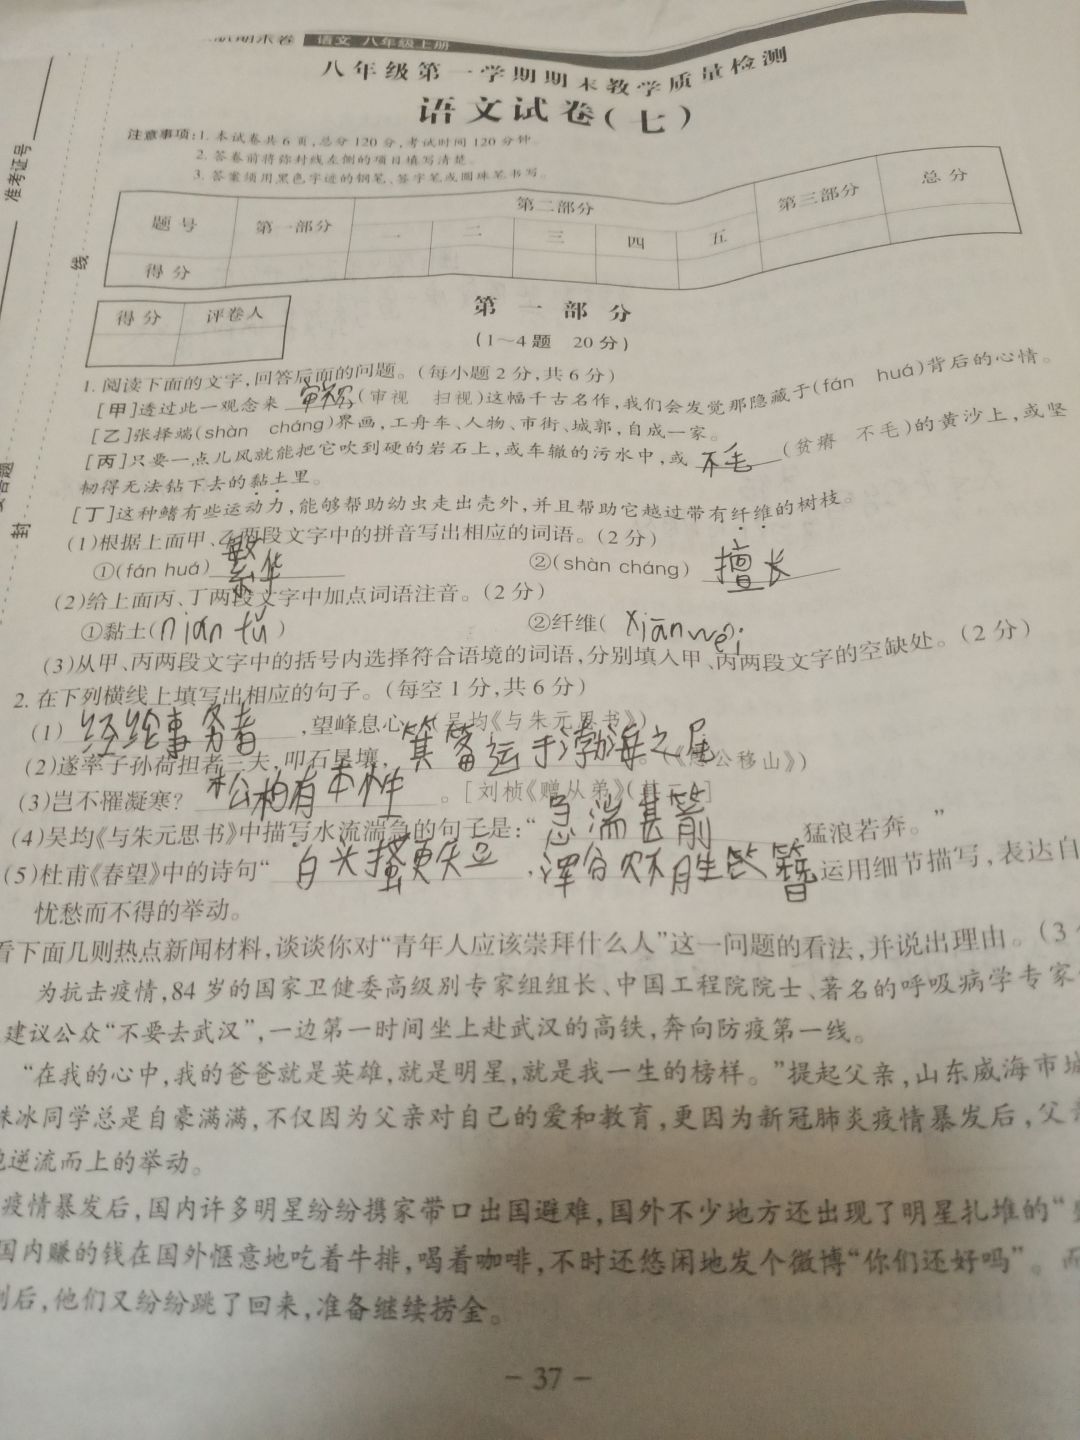 期末卷 语文 八年级上册
八年级第一学期期末教学质量检测
语文试卷(七)
注意事项:1. 本试卷共6页,总分120分,考试时间120分钟。
2. 答卷前将弥封线左侧的项目填写清楚。
3. 答案须用黑色字迹的钢笔、签字笔或圆珠笔书写。
准考证号
线
封
题号 第一部分 第二部分 第三部分 总分
一 二 三 四 五
得分
得分 评卷人
第一部分
(1~4题 20分)
1. 阅读下面的文字,回答后面的问题。(每小题2分,共6分)
[甲]透过此一观念来 审视 (审视 扫视)这幅千古名作,我们会发觉那隐藏于(fán huá)背后的心情。
[乙]张择端(shàn cháng)界画,工舟车、人物、市街、城郭,自成一家。
[丙]只要一点儿风就能把它吹到硬的岩石上,或车辙的污水中,或 不毛 (贫瘠 不毛)的黄沙上,或坚
韧得无法钻下去的黏土里。
[丁]这种鳍有些运动力,能够帮助幼虫走出壳外,并且帮助它越过带有纤维的树枝。
(1)根据上面甲、乙两段文字中的拼音写出相应的词语。(2分)
①(fán huá) 繁华 ②(shàn cháng) 擅长
(2)给上面丙、丁两段文字中加点词语注音。(2分)
①黏土(nián tǔ) ②纤维(xiān wéi)
(3)从甲、丙两段文字中的括号内选择符合语境的词语,分别填入甲、丙两段文字的空缺处。(2分)
2. 在下列横线上填写出相应的句子。(每空1分,共6分)
(1) 经纶事务者 ,望峰息心。(吴均《与朱元思书》)
(2)遂率子孙荷担者三夫,叩石垦壤, 箕畚运于渤海之尾 。(《愚公移山》)
(3)岂不罹凝寒? 松柏有本性 。[刘桢《赠从弟》(其二)]
(4)吴均《与朱元思书》中描写水流湍急的句子是:“ 急湍甚箭 ,猛浪若奔。”
(5)杜甫《春望》中的诗句“ 白头搔更短 ,浑欲不胜簪 运用细节描写,表达自
忧愁而不得的举动。
看下面几则热点新闻材料,谈谈你对“青年人应该崇拜什么人”这一问题的看法,并说出理由。(3
为抗击疫情,84岁的国家卫健委高级别专家组组长、中国工程院院士、著名的呼吸病学专家
建议公众“不要去武汉”,一边第一时间坐上赴武汉的高铁,奔向防疫第一线。
“在我的心中,我的爸爸就是英雄,就是明星,就是我一生的榜样。”提起父亲,山东威海市城
姝冰同学总是自豪满满,不仅因为父亲对自己的爱和教育,更因为新冠肺炎疫情暴发后,父亲
逆流而上的举动。
疫情暴发后,国内许多明星纷纷携家带口出国避难,国外不少地方还出现了明星扎堆的“
国内赚的钱在国外惬意地吃着牛排,喝着咖啡,不时还悠闲地发个微博“你们还好吗”。而
后,他们又纷纷跳了回来,准备继续捞金。
- 37 -